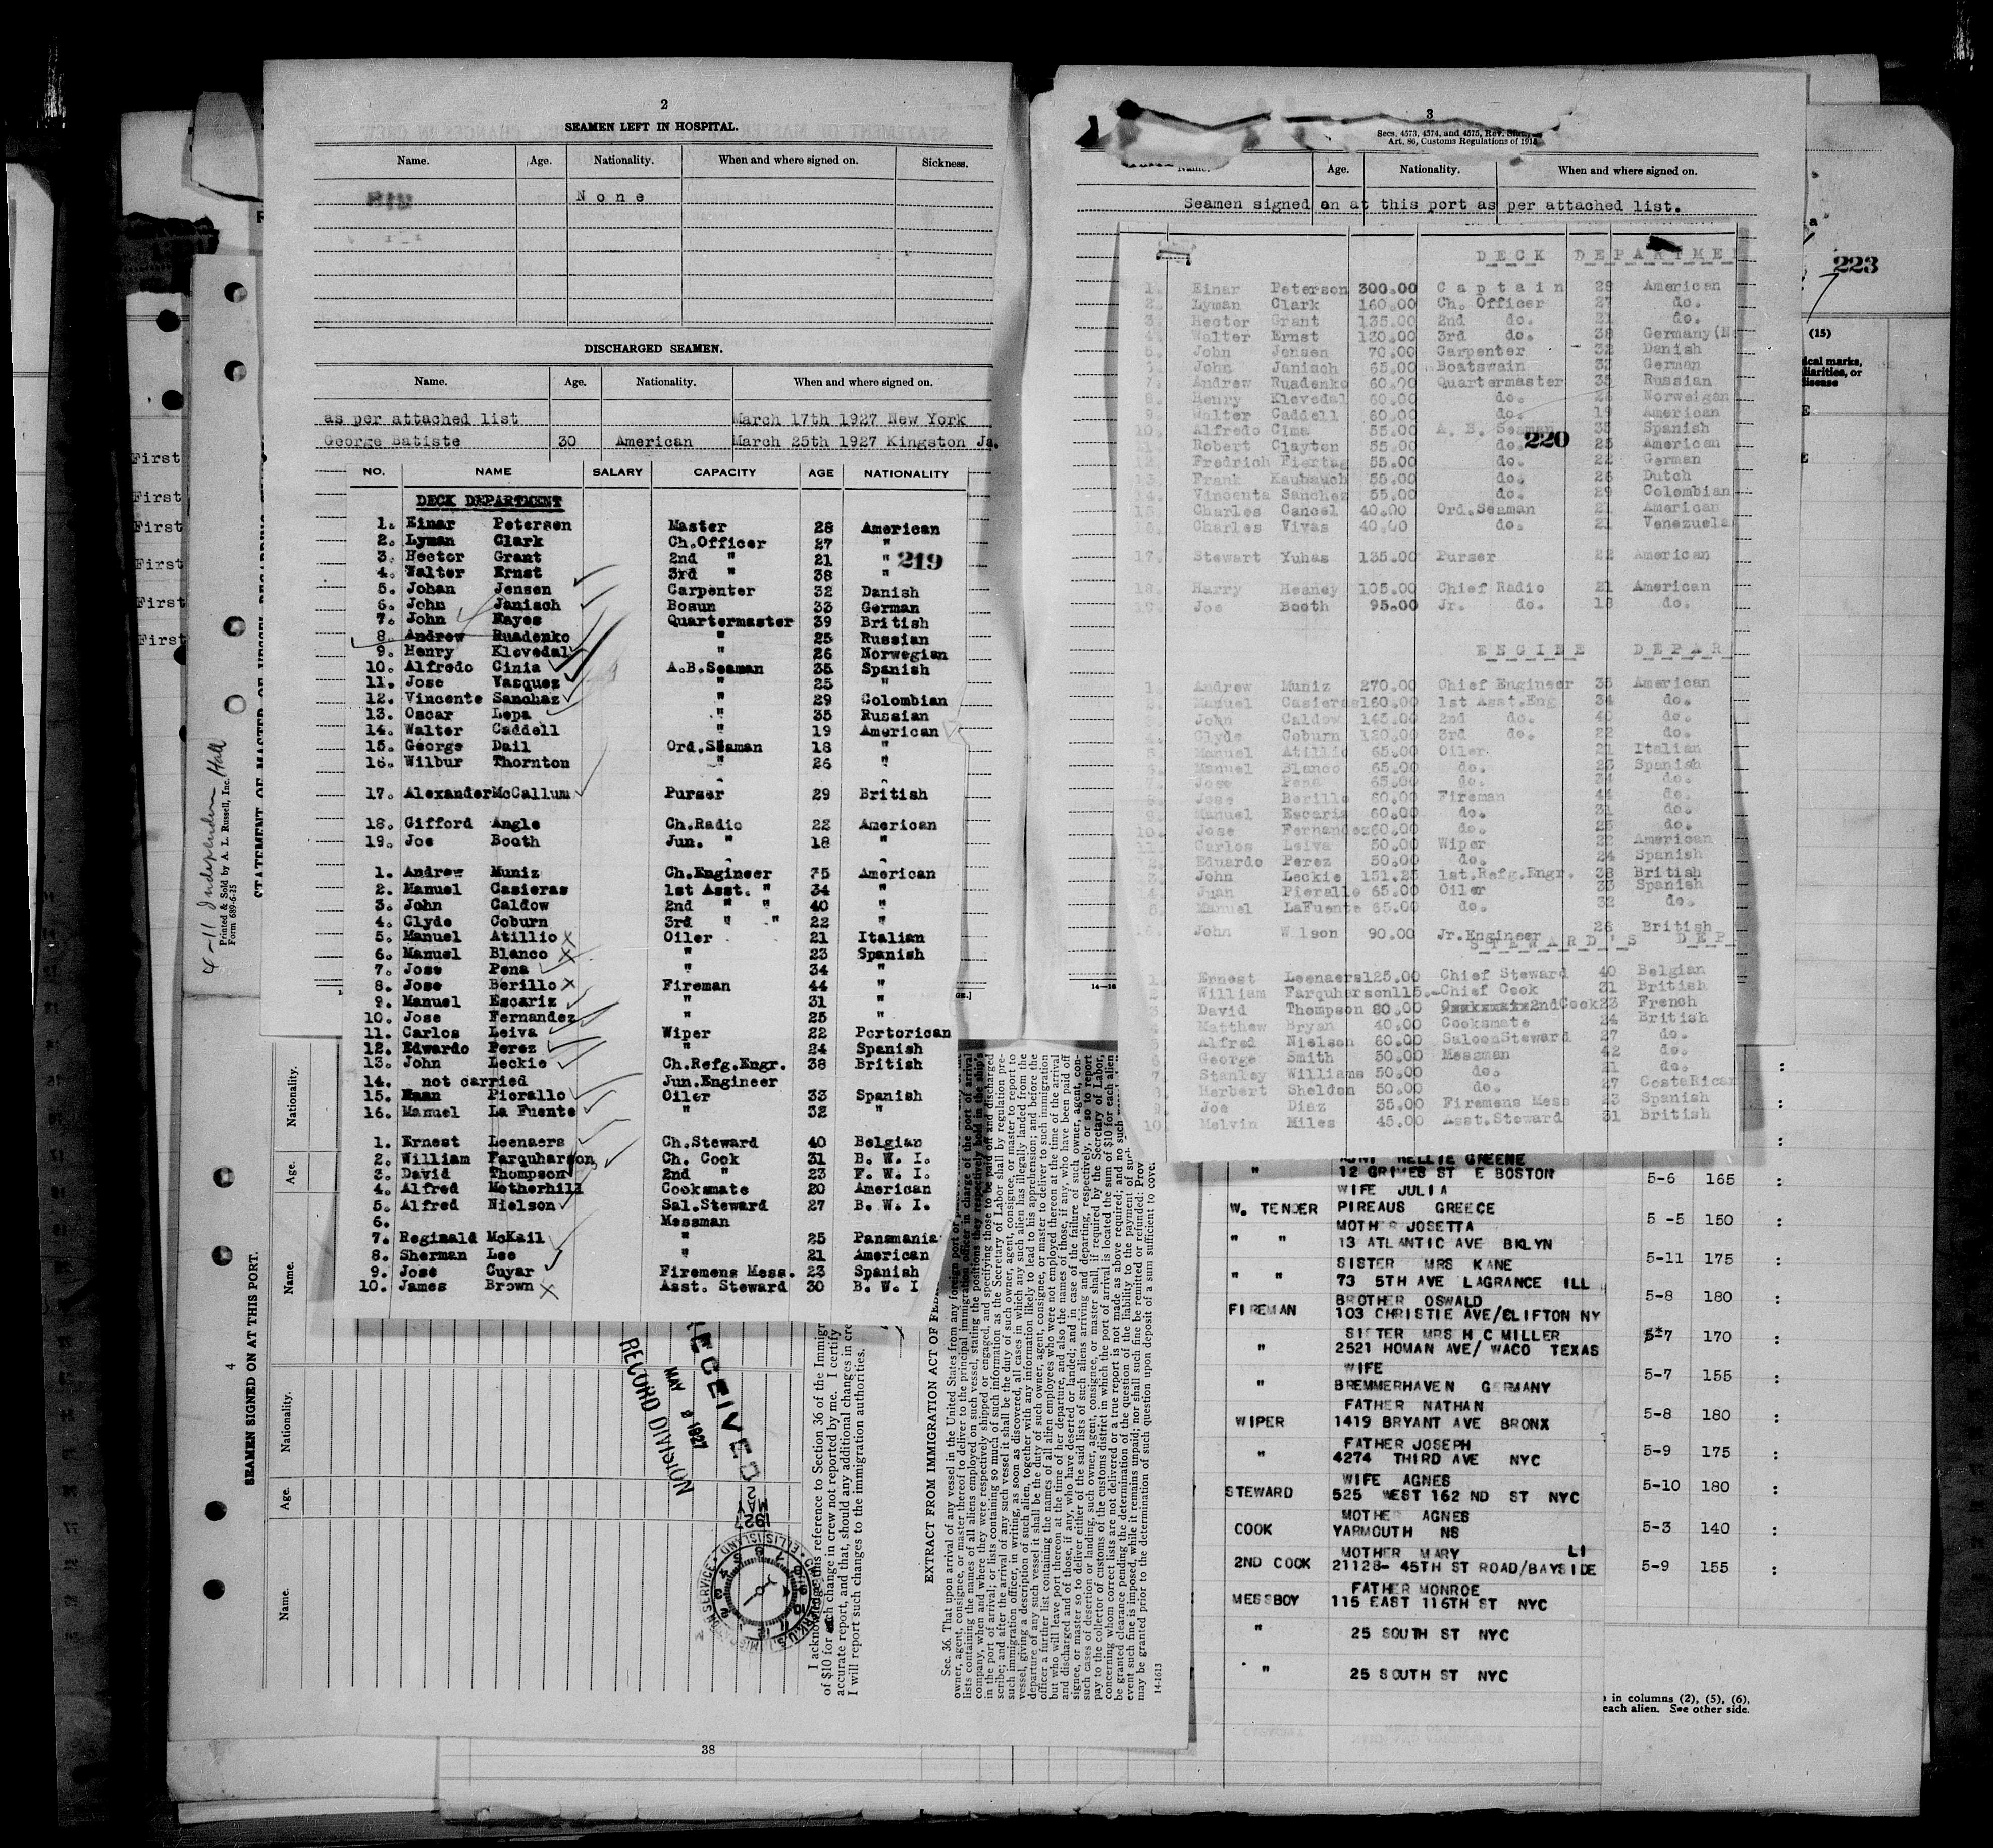 2
SEAMEN LEFT IN HOSPITAL.
Name. Age. Nationality. When and where signed on. Sickness.
None
DISCHARGED SEAMEN.
Name. Age. Nationality. When and where signed on.
as per attached list March 17th 1927 New York
George Batiste 30 American March 25th 1927 Kingston Ja.
NO. NAME SALARY CAPACITY AGE NATIONALITY
DECK DEPARTMENT
1. Einar Petersen Master 28 American
2. Lyman Clark Ch.Officer 27 "
3. Hector Grant 2nd " 21 " 219
4. Walter Ernst 3rd " 38 "
5. Johan Jensen Carpenter 32 Danish
6. John Janisch Bosun 33 German
7. John Hayes Quartermaster 39 British
8. Andrew Ruadenko " 25 Russian
9. Henry Klevedal " 26 Norwegian
10. Alfredo Cinia A.B.Seaman 35 Spanish
11. Jose Vasquez " 25 "
12. Vincente Sanchaz " 29 Colombian
13. Oscar Lepa " 35 Russian
14. Walter Caddell " 19 American
15. George Dail Ord.Seaman 18 "
16. Wilbur Thornton " 26 "
17. AlexanderMcCallum Purser 29 British
18. Gifford Angle Ch.Radio 22 American
19. Joe Booth Jun. " 18 "
1. Andrew Muniz Ch.Engineer 35 American
2. Manuel Casieras 1st Asst. " 34 "
3. John Caldow 2nd " " 40 "
4. Clyde Coburn 3rd " " 22 "
5. Manuel Atillio Oiler 21 Italian
6. Manuel Blanco " 23 Spanish
7. Jose Pena " 34 "
8. Jose Berillo Fireman 44 "
9. Manuel Escariz " 31 "
10. Jose Fernandez " 25 "
11. Carlos Leiva Wiper 22 Portorican
12. Edwardo Perez " 24 Spanish
13. John Leckie Ch.Refg.Engr. 38 British
14. not carried Jun.Engineer
15. Piorallo Oiler 33 Spanish
16. Manuel La Fuente " 32 "
1. Ernest Leenaers Ch.Steward 40 Belgian
2. William Farquharson Ch. Cook 31 B. W. I.
3. David Thompson 2nd " 23 F. W. I.
4. Alfred Motherhill Cooksmate 20 American
5. Alfred Nielson Sal.Steward 27 B. W. I.
6. Messman
7. Reginald McKail " 25 Panamania
8. Sherman Lee " 21 American
9. Jose Cuyar Firemens Mess. 23 Spanish
10. James Brown Asst. Steward 30 B. W. I
3
Secs. 4573, 4574, and 4575, Rev.
Art. 86, Customs Regulations of 1915
Name. Age. Nationality. When and where signed on.
Seamen signed on at this port as per attached list.
DECK DEPARTMEN
1. Einar Peterson 300.00 Captain 28 American
2. Lyman Clark 160.00 Ch. Officer 27 do.
3. Hector Grant 135.00 2nd do. 21 do.
4. Walter Ernst 130.00 3rd do. 38 Germany(N
5. John Jensen 70.00 Carpenter 32 Danish
John Janisch 65.00 Boatswain 33 German
7. Andrew Ruadenko 60.00 Quartermaster 35 Russian
8. Henry Klevedal 60.00 do. 26 Norweigan
9. Walter Caddell 60.00 do. 19 American
10. Alfredo Cima 55.00 A. B. Seaman 35 Spanish
11. Robert Clayton 55.00 do. 220 25 American
12. Fredrich Fiertag 55.00 do. 22 German
13. Frank Kaubauch 55.00 do. 26 Dutch
14. Vincenta Sanchez 55.00 do. 29 Colombian
15. Charles Cancel 40.00 Ord.Seaman 21 American
16. Charles Vivas 40.00 do. 21 Venezuela
17. Stewart Yuhas 135.00 Purser 22 American
18. Harry Heaney 105.00 Chief Radio 21 American
19. Joe Booth 95.00 Jr. do. 18 do.
ENGINE DEPAR
1. Andrew Muniz 270.00 Chief Engineer 35 American
2. Manuel Casieras160.00 1st Asst.Eng 34 do.
John Caldow 145.00 2nd do. 40 do.
Clyde Coburn 120.00 3rd do. 22 do.
5. Manuel Atillio 65.00 Oiler 21 Italian
6. Manuel Blanco 65.00 do. 23 Spanish
7. Jose Pena 65.00 do. 34 do.
8. Jose Berillo 60.00 Fireman 44 do.
9. Manuel Escaris 60.00 do. 31 do.
10. Jose Fernandez60.00 do. 25 do.
11. Carlos Leiva 50.00 Wiper 22 American
2. Eduardo Perez 50.00 do. 24 Spanish
3. John Leckie 151.25 1st.Refg.Engr. 38 British
4. Juan Pieralle 65.00 Oiler 33 Spanish
5. Manuel LaFuente 65.00 do. 32 do.
16. John Wilson 90.00 Jr.Engineer 26 British
STEWARD'S DEP
1. Ernest Leenaers125.00 Chief Steward 40 Belgian
2. William Farquherson115. Chief Cook 31 British
3. David Thompson 80.00 2ndCook23 French
4. Matthew Bryan 40.00 Cooksmate 24 British
5. Alfred Nielson 60.00 SaloonSteward 27 do.
6. George Smith 50.00 Messman 42 do.
7. Stanley Williams 50.00 do. 21 do.
8. Herbert Sheldon 50.00 do. 27 CostaRican
9. Joe Diaz 35.00 Firemens Mess 23 Spanish
10. Melvin Miles 45.00 Asst.Steward 31 British
223
(15)
ical marks,
liarities, or
disease
NELLIE GREENE
12 GRIMES ST E BOSTON 5-6 165
WIFE JULIA
W. TENDER PIREAUS GREECE 5 -5 150
MOTHER JOSETTA
" " 13 ATLANTIC AVE BKLYN 5-11 175
SISTER MRS KANE
" " 73 5TH AVE LAGRANCE ILL 5-8 180
BROTHER OSWALD
FIREMAN 103 CHRISTIE AVE/CLIFTON NY
SISTER MRS H C MILLER 5-7 170
" 2521 HOMAN AVE/ WACO TEXAS
WIFE 5-7 155
" BREMMERHAVEN GERMANY
FATHER NATHAN 5-8 180
WIPER 1419 BRYANT AVE BRONX
FATHER JOSEPH 5-9 175
" 4274 THIRD AVE NYC
WIFE AGNES 5-10 180
STEWARD 525 WEST 162 ND ST NYC
MOTHER AGNES 5-3 140
COOK YARMOUTH NS
MOTHER MARY LI 5-9 155
2ND COOK 21128- 45TH ST ROAD/BAYSIDE
FATHER MONROE
MESSBOY 115 EAST 116TH ST NYC
" 25 SOUTH ST NYC
" 25 SOUTH ST NYC
in columns (2), (5), (6),
each alien. See other side.
First
First
First
First
First
First
4-11 Independen Hall
Printed & Sold by A. L. Russell, Inc.
Form 689-6-25
STATEMENT OF MASTER OF VESSEL REGARDING
4
SEAMEN SIGNED ON AT THIS PORT.
Name. Age. Nationality. Name. Age. Nationality.
RECEIVED
MAY 2 1927
RECORD DIVISION
I acknowledge this reference to Section 36 of the Immigr
of $10 for each change in crew not reported by me. I certify
accurate report, and that, should any additional changes in cre
I will report such changes to the immigration authorities.
EXTRACT FROM IMMIGRATION ACT OF FEB
Sec. 36. That upon arrival of any vessel in the United States from any foreign port or
owner, agent, consignee, or master thereof to deliver to the principal immigration officer in charge of the port of arrival
lists containing the names of all aliens employed on such vessel, stating the positions they respectively hold in the ship's
company, when and where they were respectively shipped or engaged, and specifying those to be paid off and discharged
in the port of arrival; or lists containing so much of such information as the Secretary of Labor shall by regulation pre-
scribe; and after the arrival of any such vessel it shall be the duty of such owner, agent, consignee, or master to report to
such immigration officer, in writing, as soon as discovered, all cases in which any such alien has illegally landed from the
vessel, giving a description of such alien, together with any information likely to lead to his apprehension; and before the
departure of any such vessel it shall be the duty of such owner, agent, consignee, or master to deliver to such immigration
officer a further list containing the names of all alien employees who were not employed thereon at the time of the arrival
but who will leave port thereon at the time of her departure, and also the names of those, if any, who have been paid off
and discharged and of those, if any, who have deserted or landed; and in case of the failure of such owner, agent, con-
signee, or master so to deliver either of the said lists of such aliens arriving and departing, respectively, or so to report
such cases of desertion or landing, such owner, agent, consignee, or master shall, if required by the Secretary of Labor,
pay to the collector of customs of the customs district in which the port of arrival is located the sum of $10 for each alien
concerning whom correct lists are not delivered or a true report is not made as above required; and no such
be granted clearance pending the determination of the question of the liability to the payment of such
event such fine is imposed, while it remains unpaid; nor shall such fine be remitted or refunded: Prov
may be granted prior to the determination of such question upon deposit of a sum sufficient to cover
14-1613
38